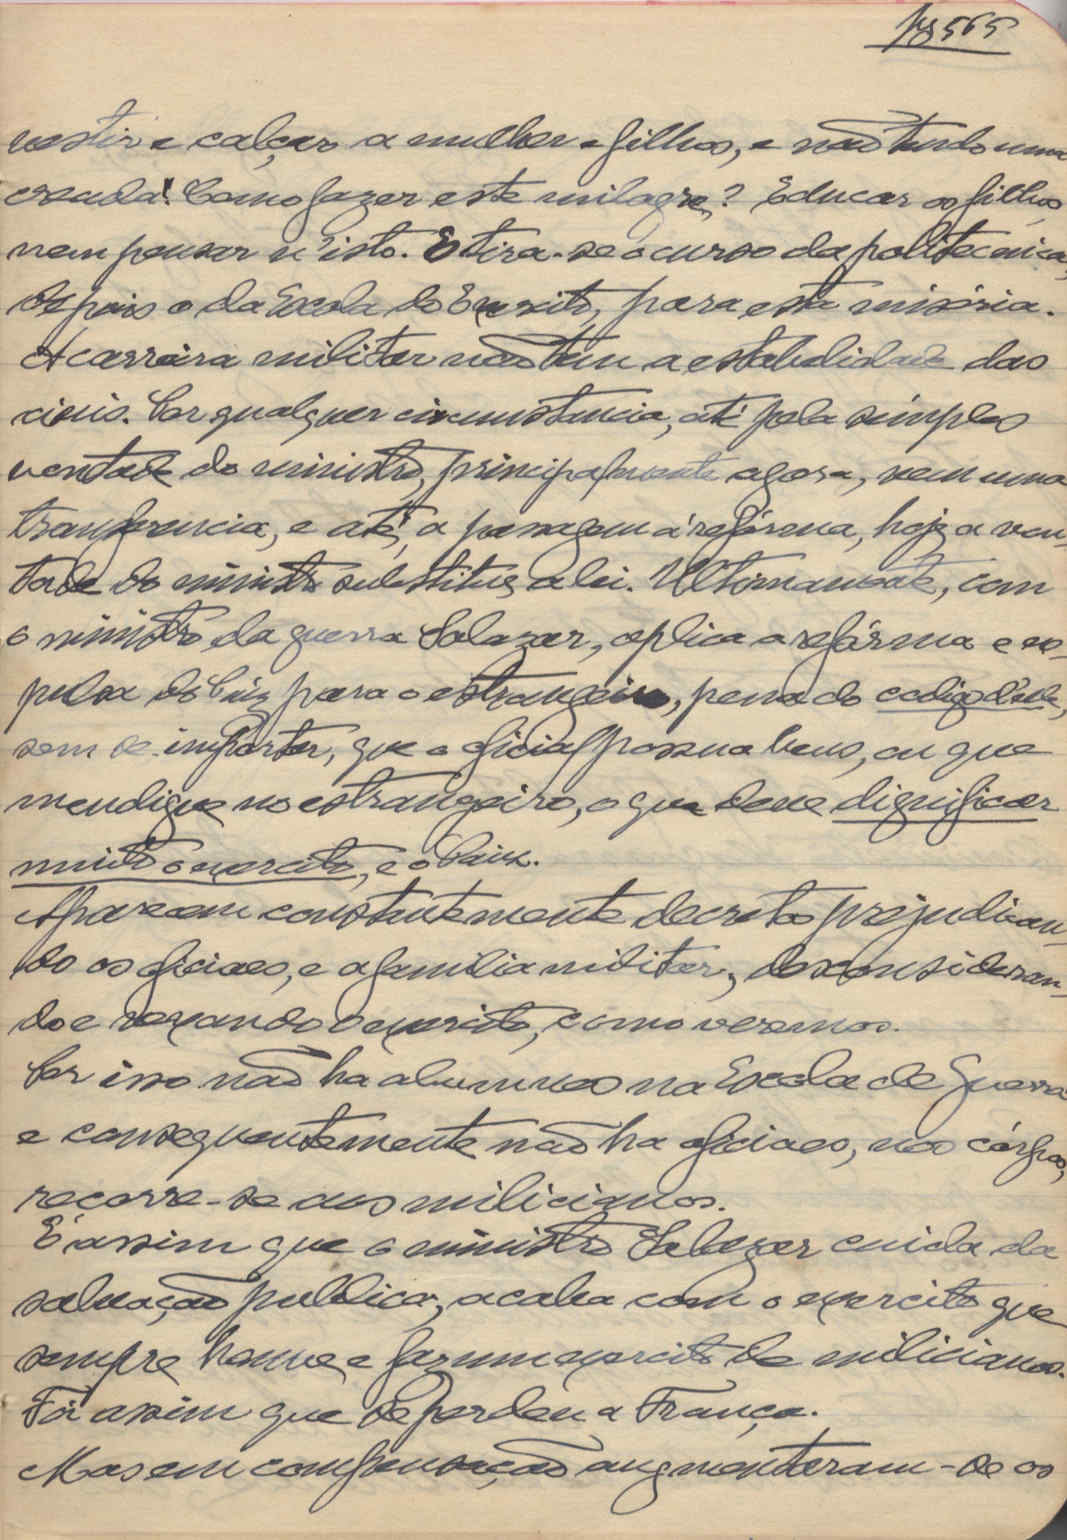 pg 565
vestir e calçar a mulher e filhos, e não tendo uma
creada! Como fazer este milagre? Educar os filhos
nem pensar n'isto. E tira-se o curso da politecnica,
depois o da Escola do Exercito, para esta miséria.
A carreira militar não tem a estabelidade das
civis. Por qualquer circumstancia, até pela simples
vontade do ministro, principalmente agora, vem uma
tranferencia, e até, a passagem á refórma, hoje a von-
tade do ministro substitue a lei. Ultimamente, com
o ministro da guerra Salazar, aplica a refórma e ex-
pulsa do Paiz para o estrangeiro, pena do codigo d'ele,
sem se importar, que o oficial possua bens, ou que
mendigue no estrangeiro, o que deve dignificar
muito o exercito, e o Paiz.
Aparecem constantemente decretos prejudican-
do os oficiaes, e a familia militar, desconsideran-
do e vexando o exercito, como veremos.
Por isso não ha alumnos na Escola de Guerra
e consequentemente não ha oficiaes, nos córpos,
recorre-se aos milicianos.
É assim que o ministro Salazar cuida da
salvação publica, acaba com o exercito que
sempre houve e faz um exercito de milicianos.
Foi assim que se perdeu a França.
Mas em compensação augmentaram-se os